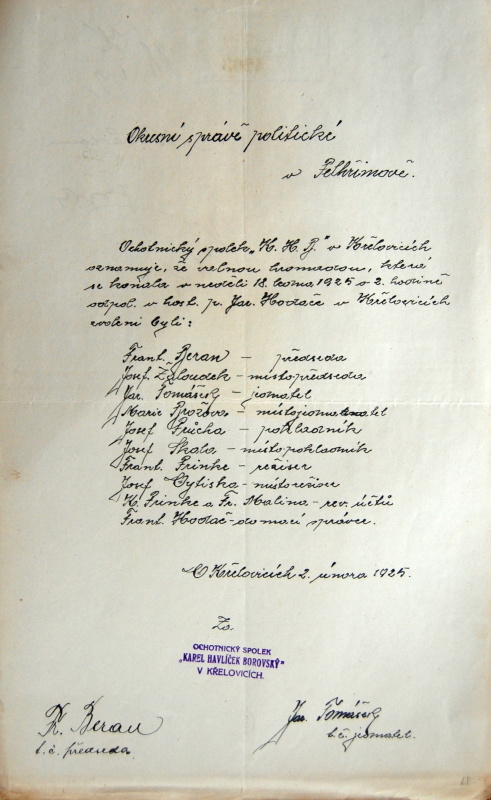 Okresní správě politické
v Pelhřimově.
Ochotnický spolek „K. H. B." v Křelovicích
oznamuje, že valnou hromadou, která
se konala v neděli 18. ledna 1925 o 2. hodině
odpol. v host. p. Jar. Hodače v Křelovicích
zvoleni byli:
Frant. Beran – předseda
Josef Žáloudek – místopředseda
Jar. Tomášek – jednatel
Marie Brožova – místojednatel
Josef Průcha – pokladník
Josef Skala – místopokladník
Frant. Prinke – režiser
Josef Cytiska – místorežiser
K. Prinke a Fr. Malina – rev. účtů
Frant. Hodač – domací správce.
V Křelovicích 2. února 1925.
Za
OCHOTNICKÝ SPOLEK
„KAREL HAVLÍČEK BOROVSKÝ"
V KŘELOVICÍCH.
Fr. Beran
t. č. předseda.
Jar. Tomášek
t. č. jednatel.